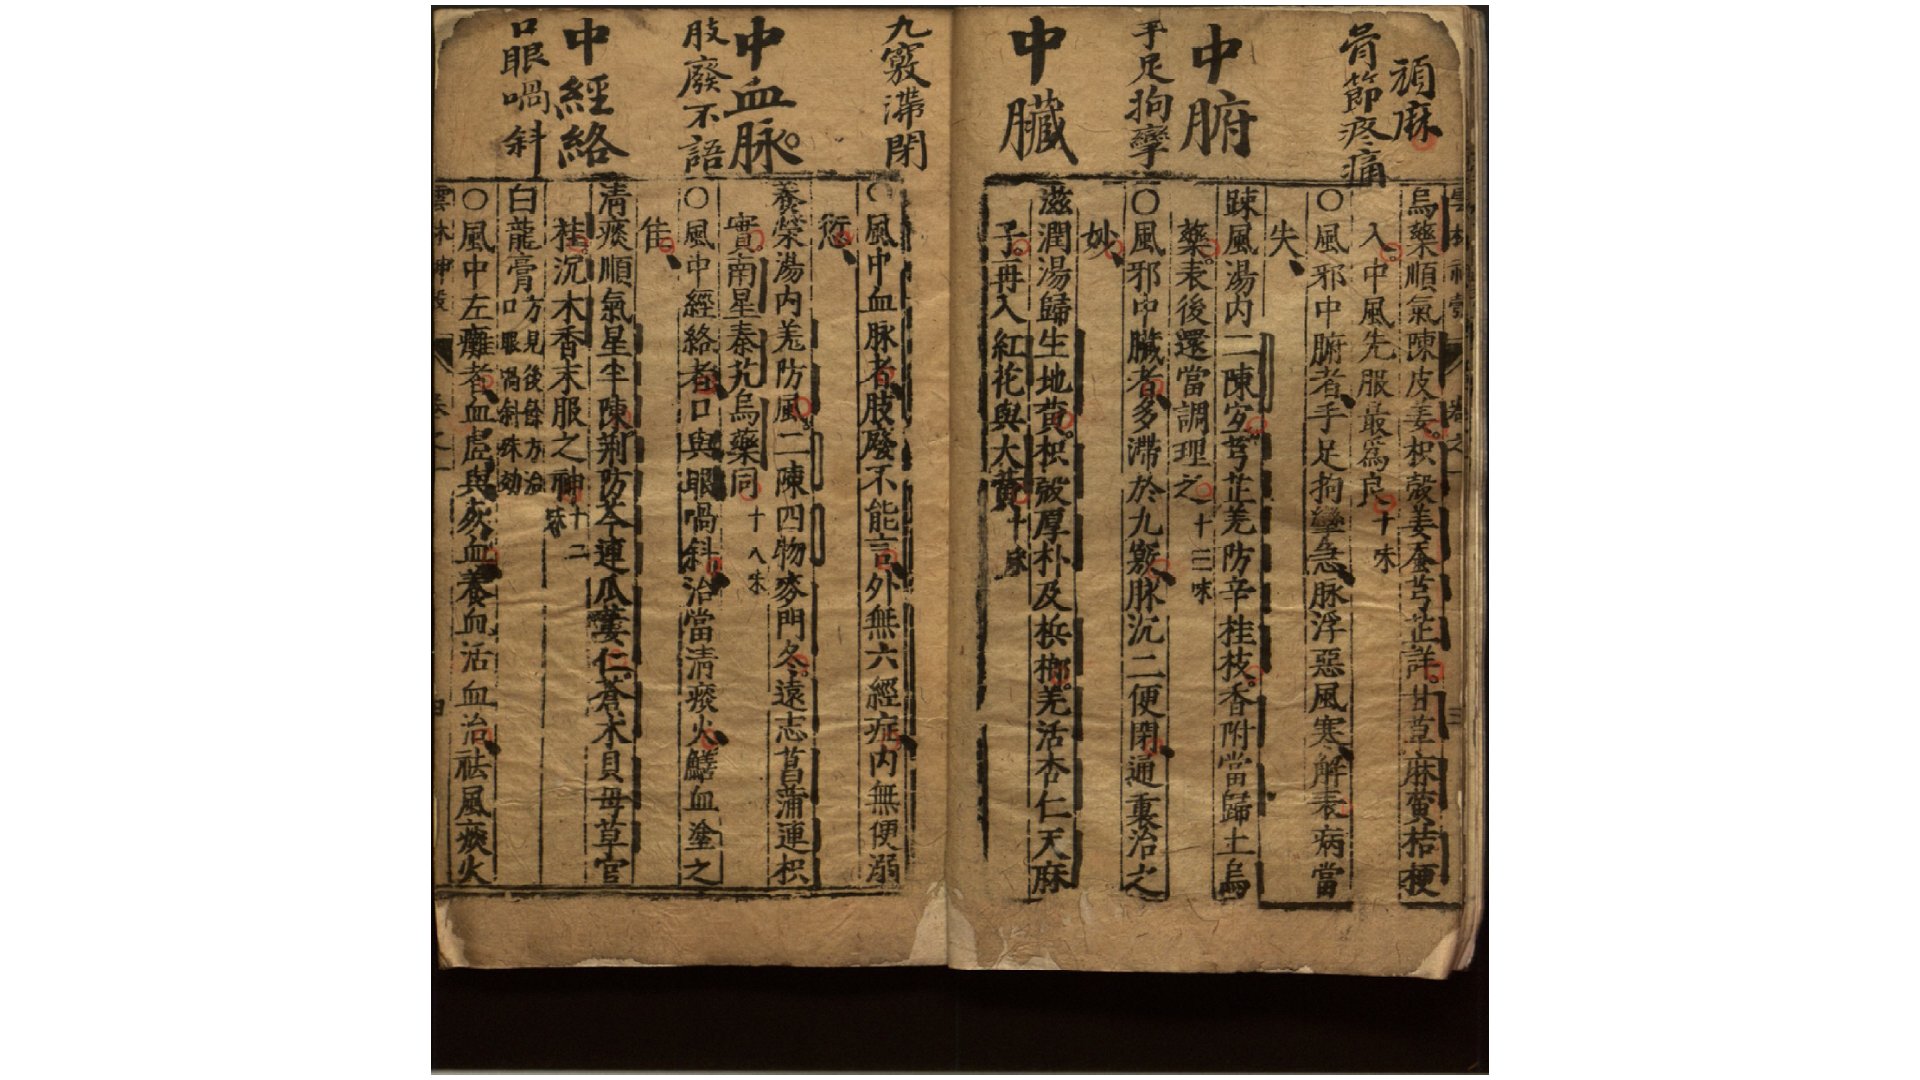 頑麻
骨節疼痛
中腑
手足拘攣
中臟
烏藥順氣陳皮姜枳殼姜蚕芎芷詳甘草麻黄桔梗
入中風先服最爲良十味
〇風邪中腑者手足拘攣急脉浮惡風寒解表病當
失
踈風湯内二陳宜芎芷羌防辛桂枝香附當歸土烏
藥表後還當調理之十三味
〇風邪中臟者多滯於九竅脉沉二便閉通裏治之
妙
滋潤湯歸生地黄枳殼厚朴及梹榔羌活杏仁天麻
子再入紅花與大黄十味
九竅滯閉
中血脉
肢廢不語
中經絡
口眼喎斜
〇風中血脉者肢廢不能言外無六經症内無便溺
愆
養榮湯内羌防風二陳四物麥門冬遠志菖蒲連枳
實南星秦艽烏藥同十八味
〇風中經絡者口與眼喎斜治當清痰火鱔血塗之
佳
清痰順氣星半陳荆防芩連瓜蔞仁蒼术貝母草官
桂沉木香末服之神十二味
白龍膏方見後餘方治口眼喎斜殊効
〇風中左癱者血虛與死血養血活血治祛風痰火